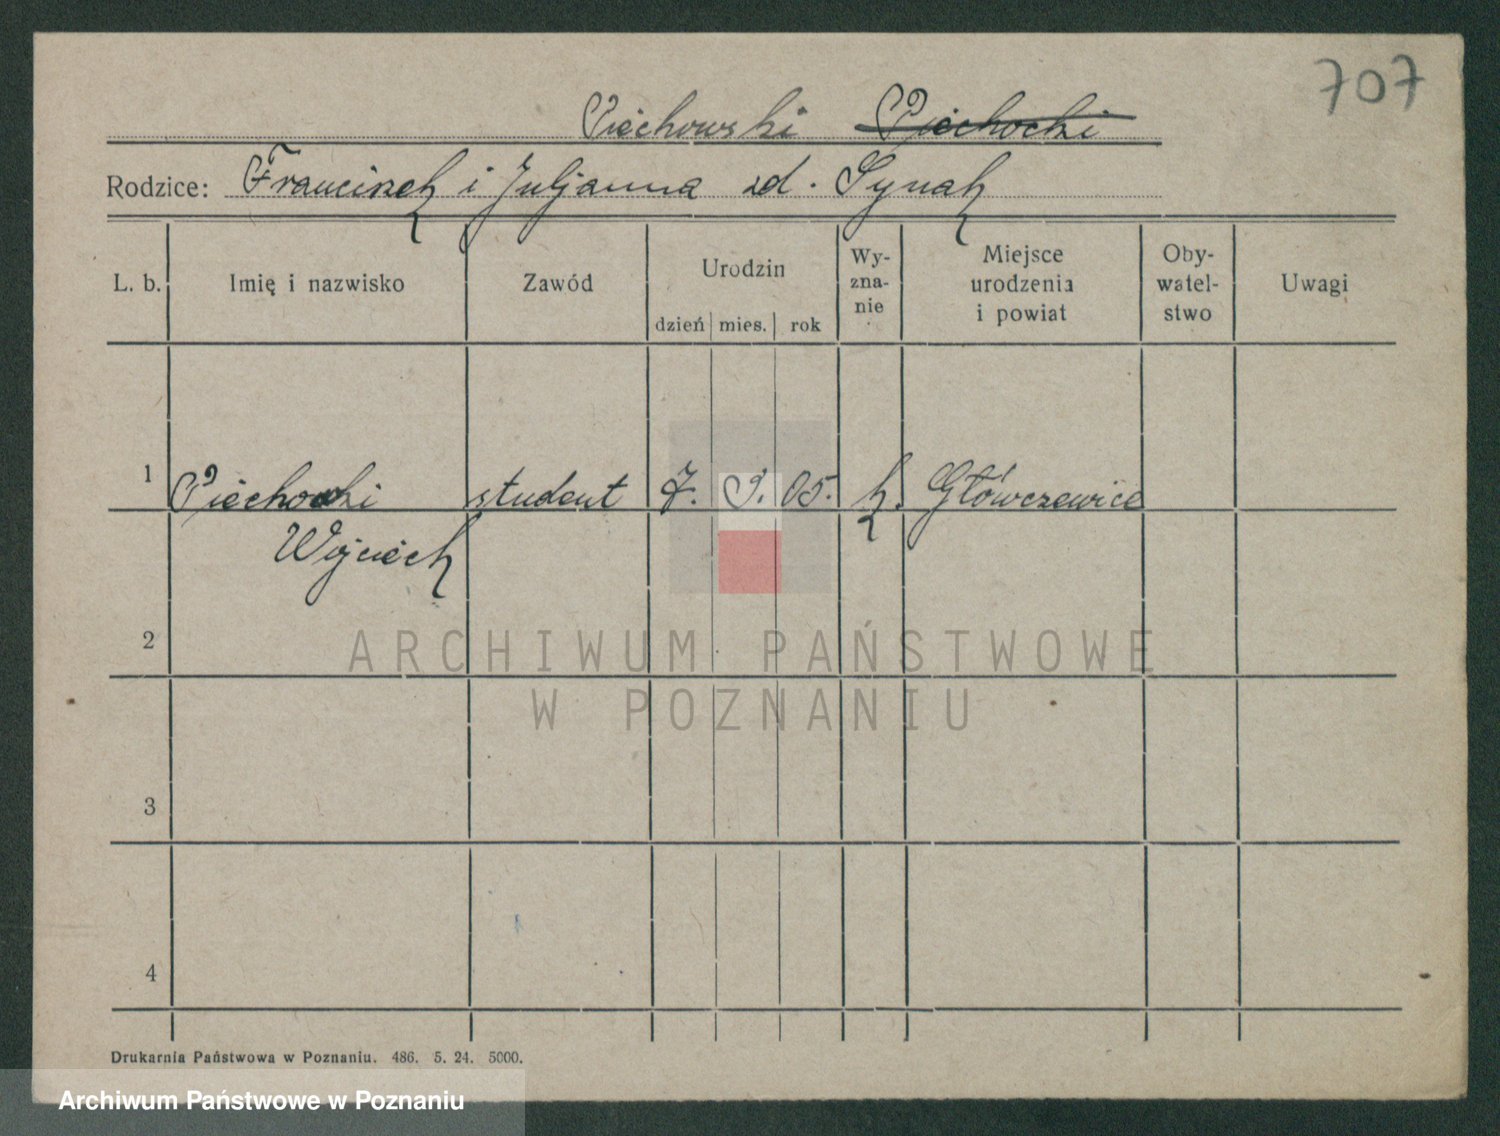 707
Piechowski Piechocki
Rodzice: Franciszek i Juljanna zd. Synak
L. b. Imię i nazwisko Zawód Urodzin dzień mies. rok Wy-znanie Miejsce urodzenia i powiat Oby-watel-stwo Uwagi
1 Piechocki student 7. 9. 05. k. Główczewice
Wojciech
2
ARCHIWUM PAŃSTWOWE
W POZNANIU
3
4
Drukarnia Państwowa w Poznaniu. 486. 5. 24. 5000.
Archiwum Państwowe w Poznaniu